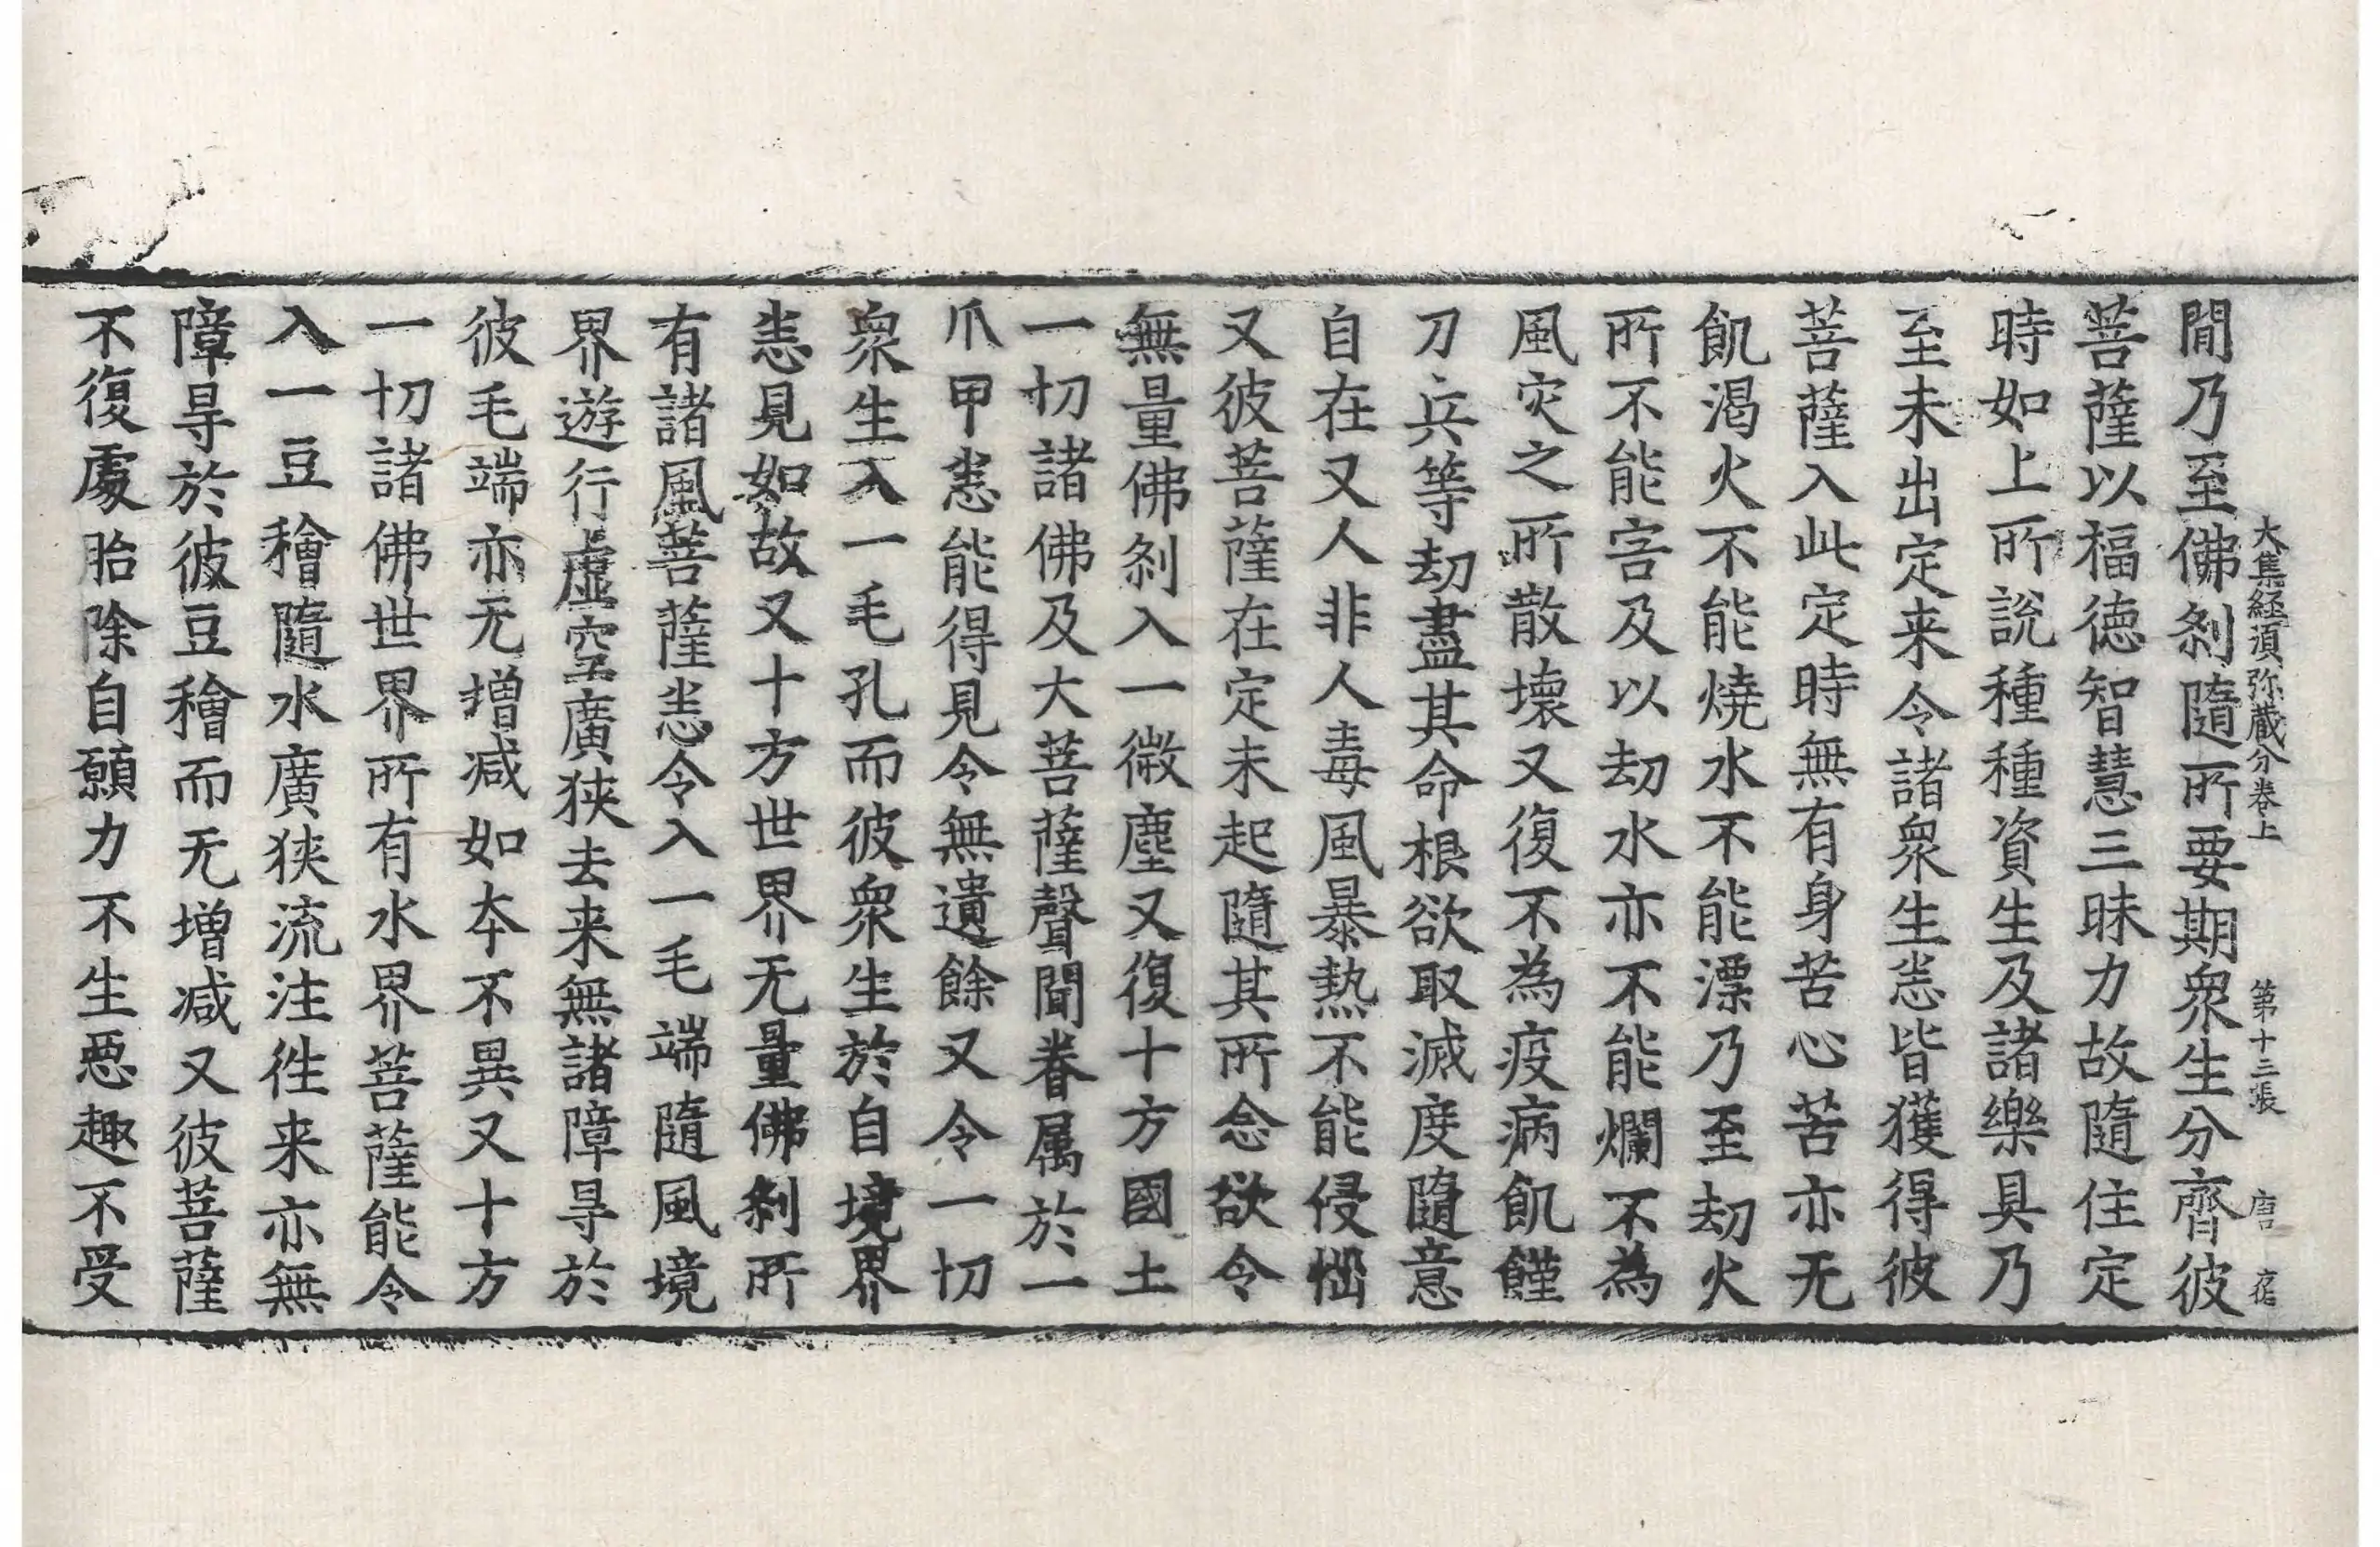 大集經湏弥藏分卷上 第十三張 唐 宿
閒乃至佛刹隨所要期衆生分齊彼
菩薩以福德智慧三昧力故隨住定
時如上所說種種資生及諸樂具乃
至未出定来令諸衆生悉皆獲得彼
菩薩入此定時無有身苦心苦亦无
飢渴火不能燒水不能漂乃至劫火
所不能害及以劫水亦不能爛不為
風灾之所散壞又復不為疫病飢饉
刀兵等劫盡其命根欲取滅度隨意
自在又人非人毒風暴熱不能侵惱
又彼菩薩在定未起隨其所念欲令
無量佛刹入一微塵又復十方國土
一切諸佛及大菩薩聲聞眷属於一
爪甲悉能得見令無遺餘又令一切
衆生入一毛孔而彼衆生於自境界
悉見如故又十方世界无量佛刹所
有諸風菩薩悉令入一毛端隨風境
界遊行虛空廣狹去来無諸障㝵於
彼毛端亦无增減如本不異又十方
一切諸佛世界所有水界菩薩能令
入一豆穭隨水廣狹流注徃来亦無
障㝵於彼豆穭而无增減又彼菩薩
不復處胎除自願力不生惡趣不受